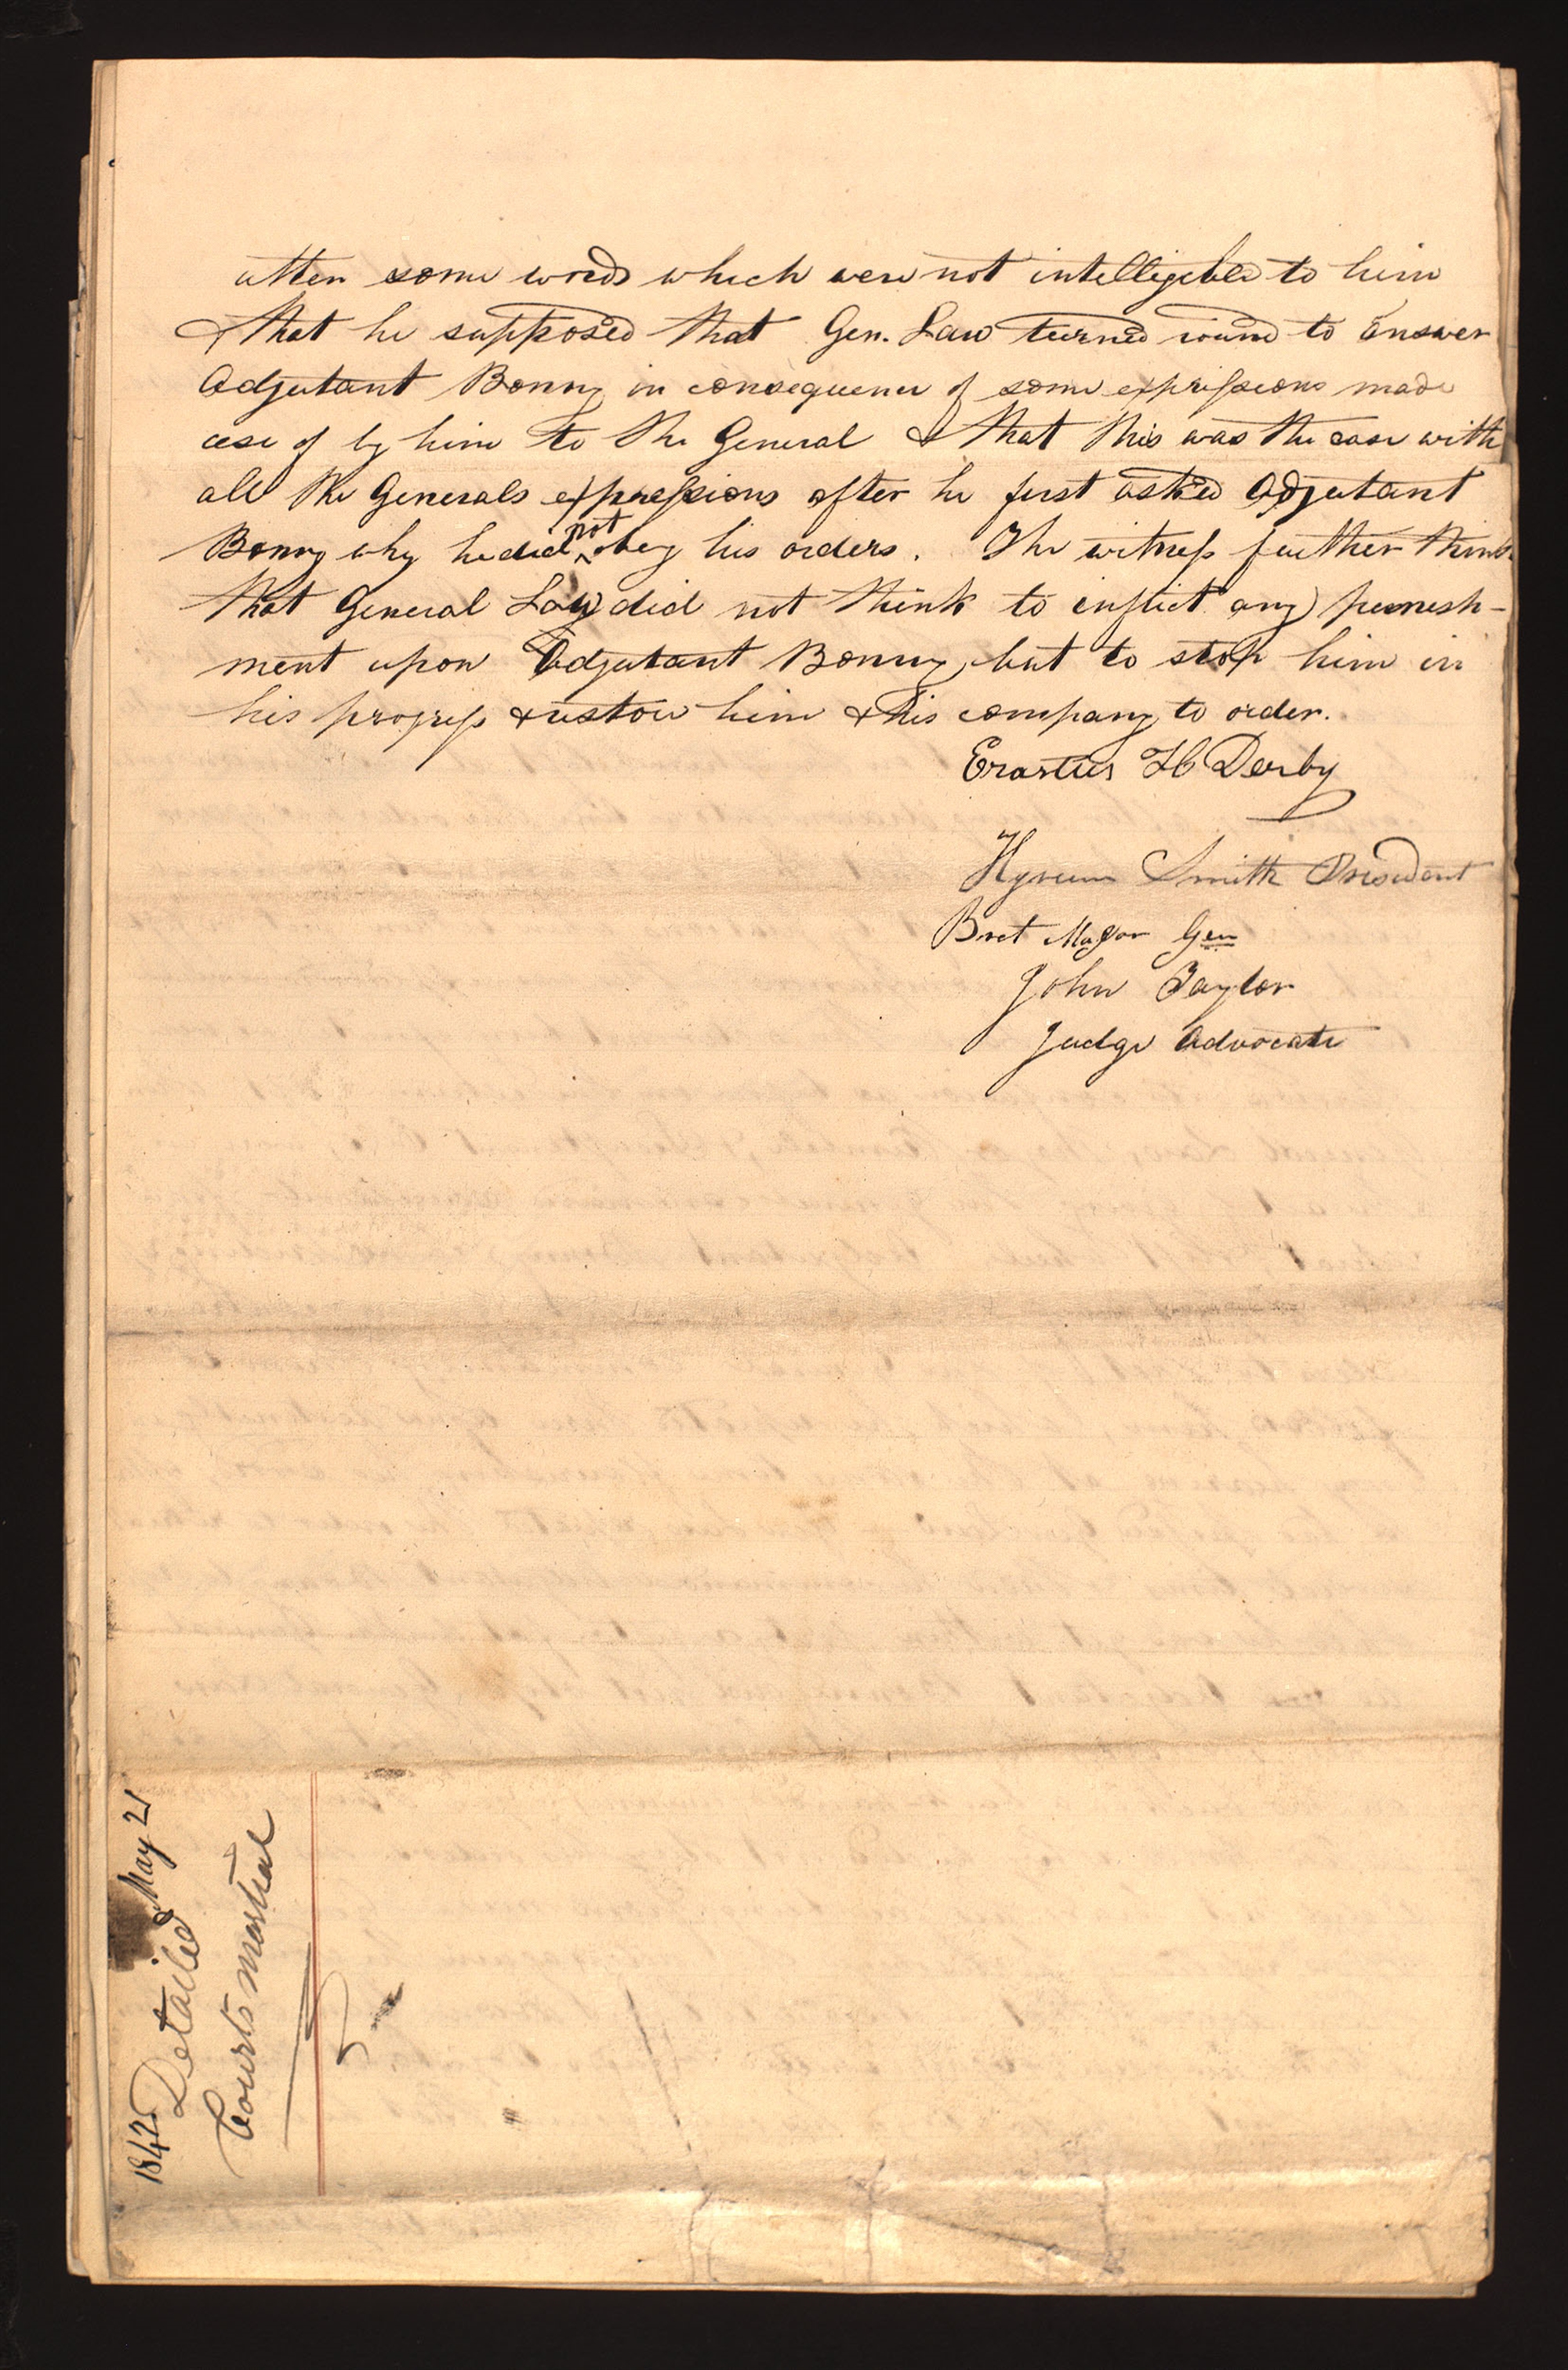 utter some words which were not intelligeble to him
& that he supposed that Gen. Law turned round to answer
Adjutant Bonny in consequence of some expressions made
use of by him to the General & that this was the case with
all the Generals expressions after he first asked Adjutant
Bonny why he did not obey his orders. The witness further thinks
that General Law did not think to inflict any punish-
ment upon Adjutant Bonny, but to stop him in
his progress & restore him & his company to order.
Erastus H Derby
Hyrum Smith President
Bret Major Gen
John Taylor
Judge Advocate
1842 May 21
Detailed
Courts martial
5